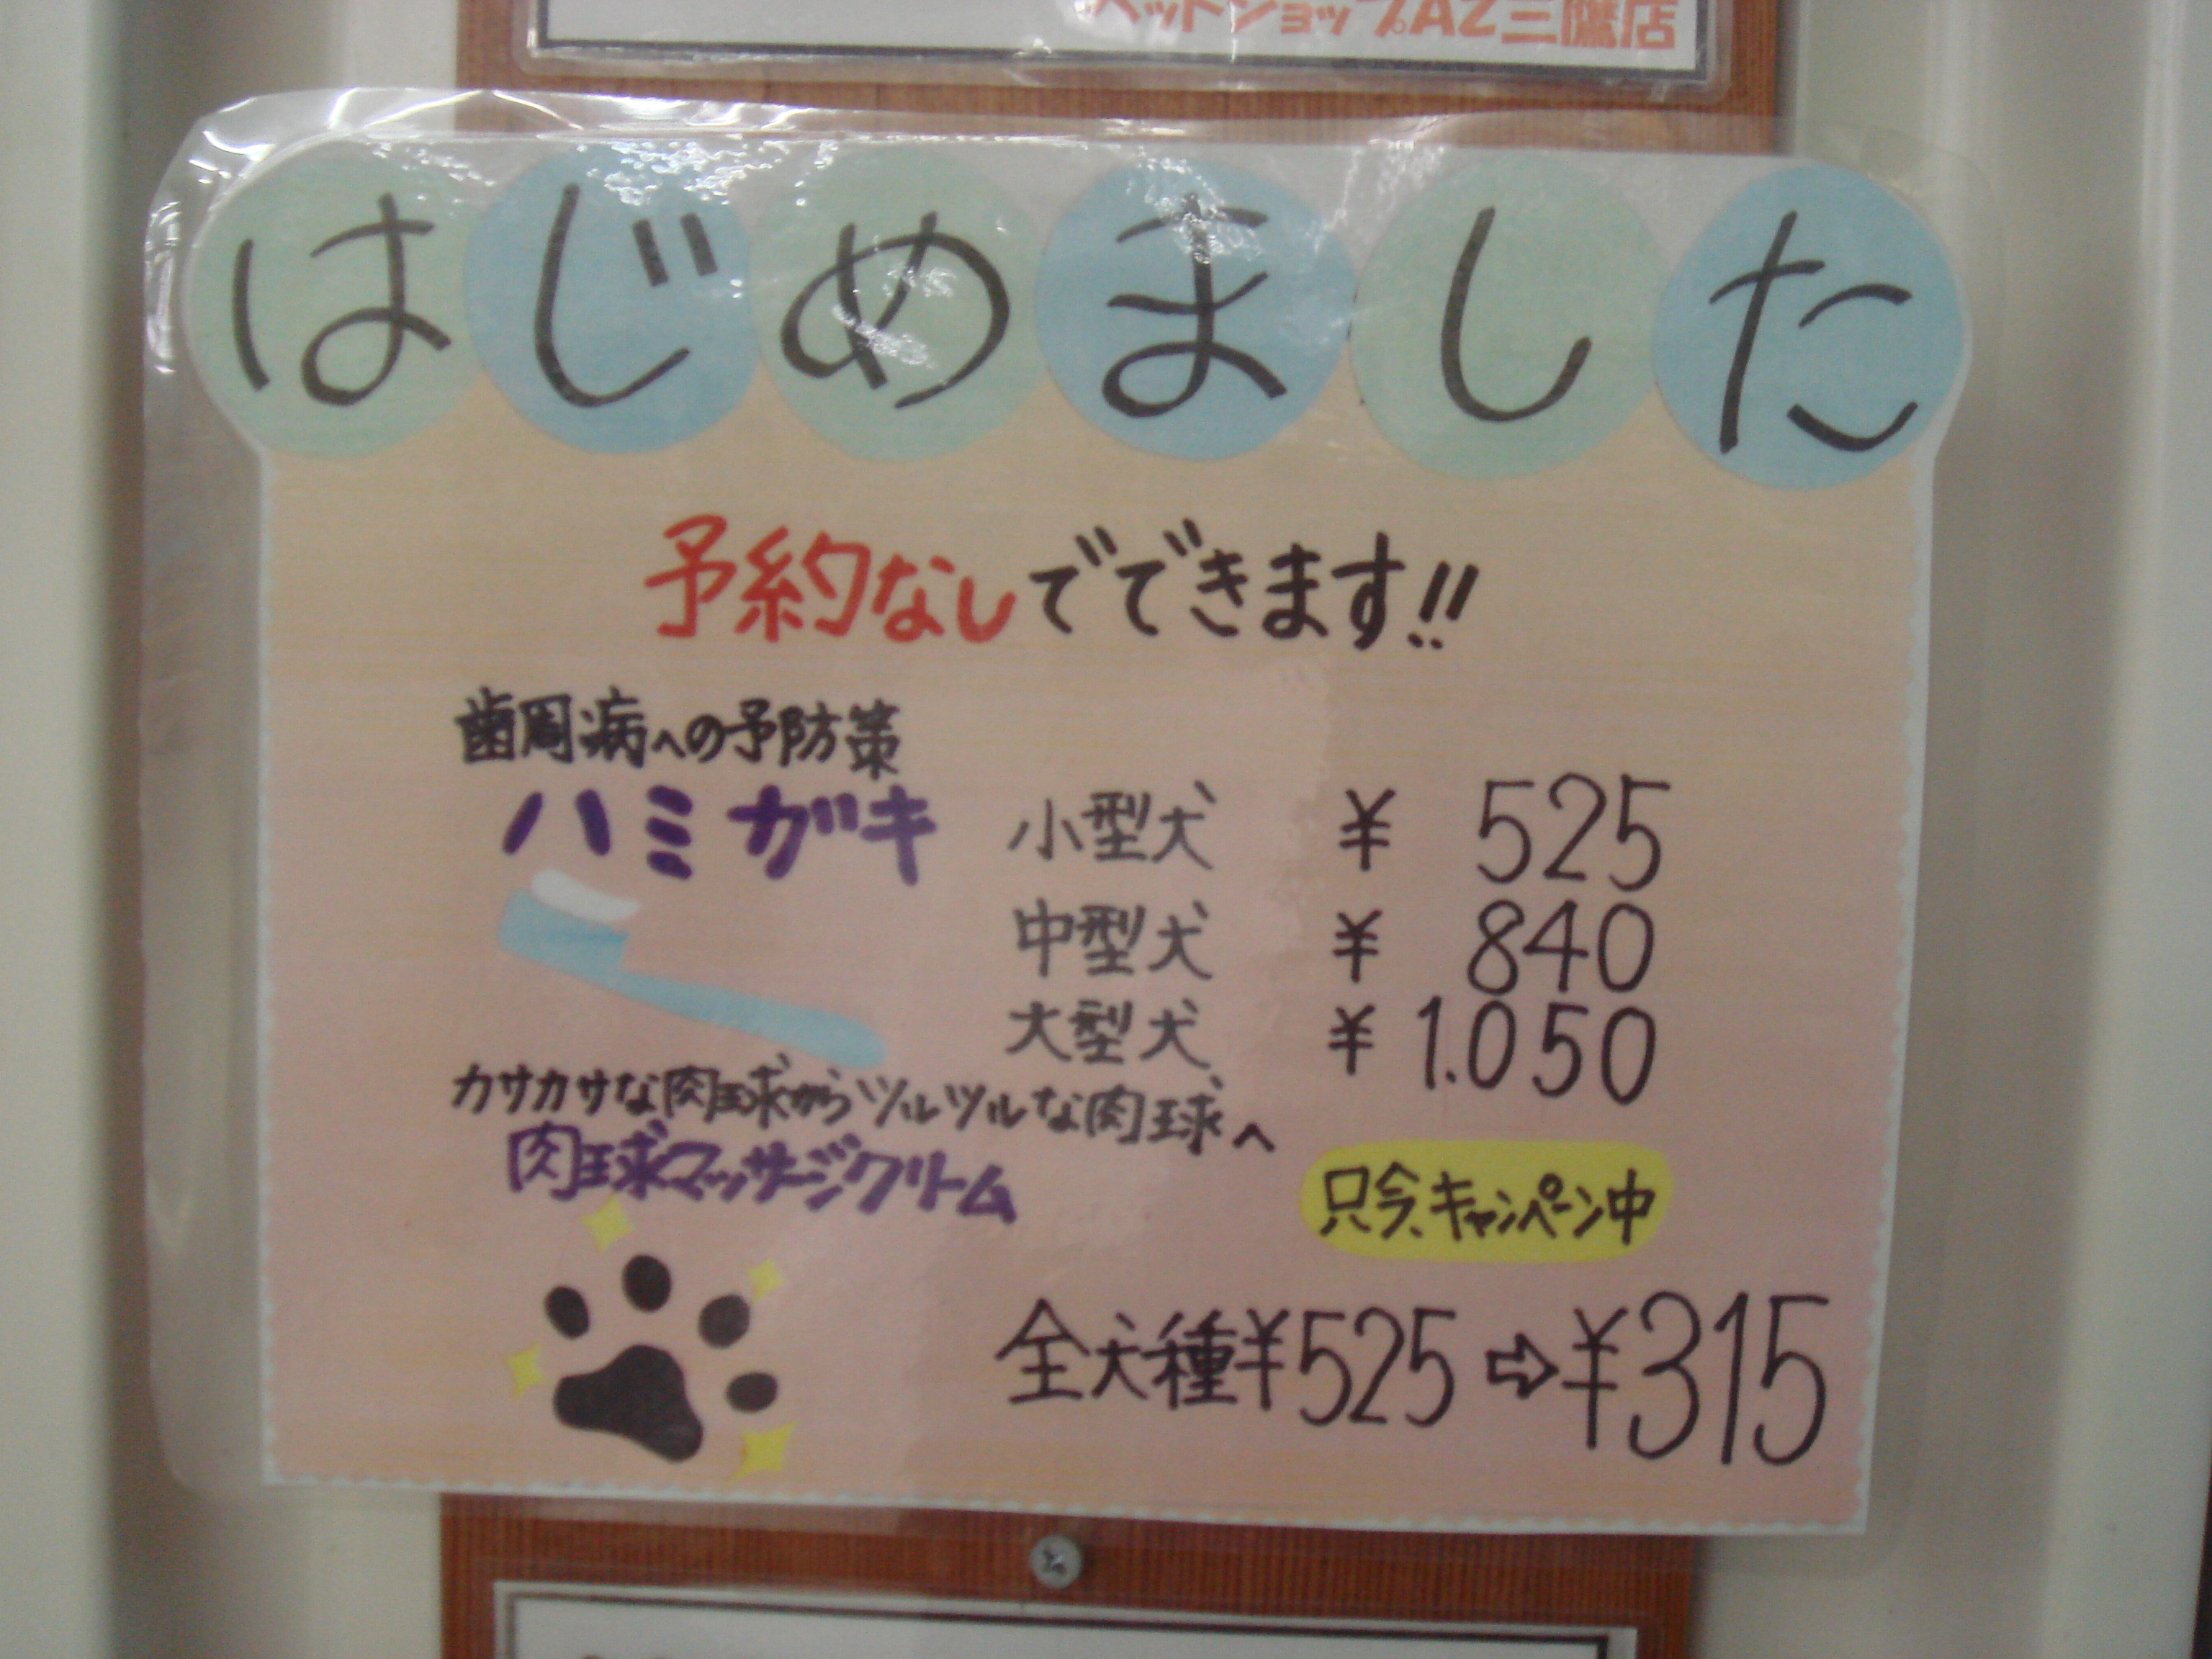 ペットショップAZ三鷹店
はじめました
予約なしでできます!!
歯周病への予防策
ハミガキ
小型犬 ¥ 525
中型犬 ¥ 840
大型犬 ¥ 1.050
カサカサな肉球からツルツルな肉球へ
肉球マッサージクリーム
只今、キャンペーン中
全犬種¥525⇨¥315